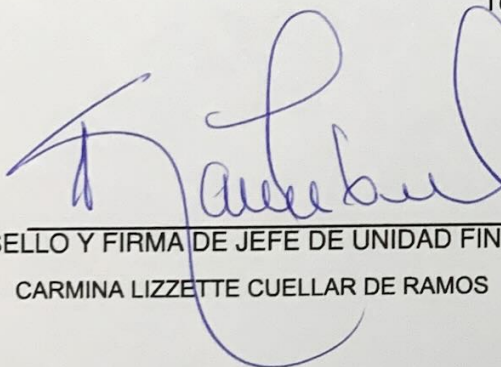 SELLO Y FIRMA DE JEFE DE UNIDAD FIN
CARMINA LIZZETTE CUELLAR DE RAMOS